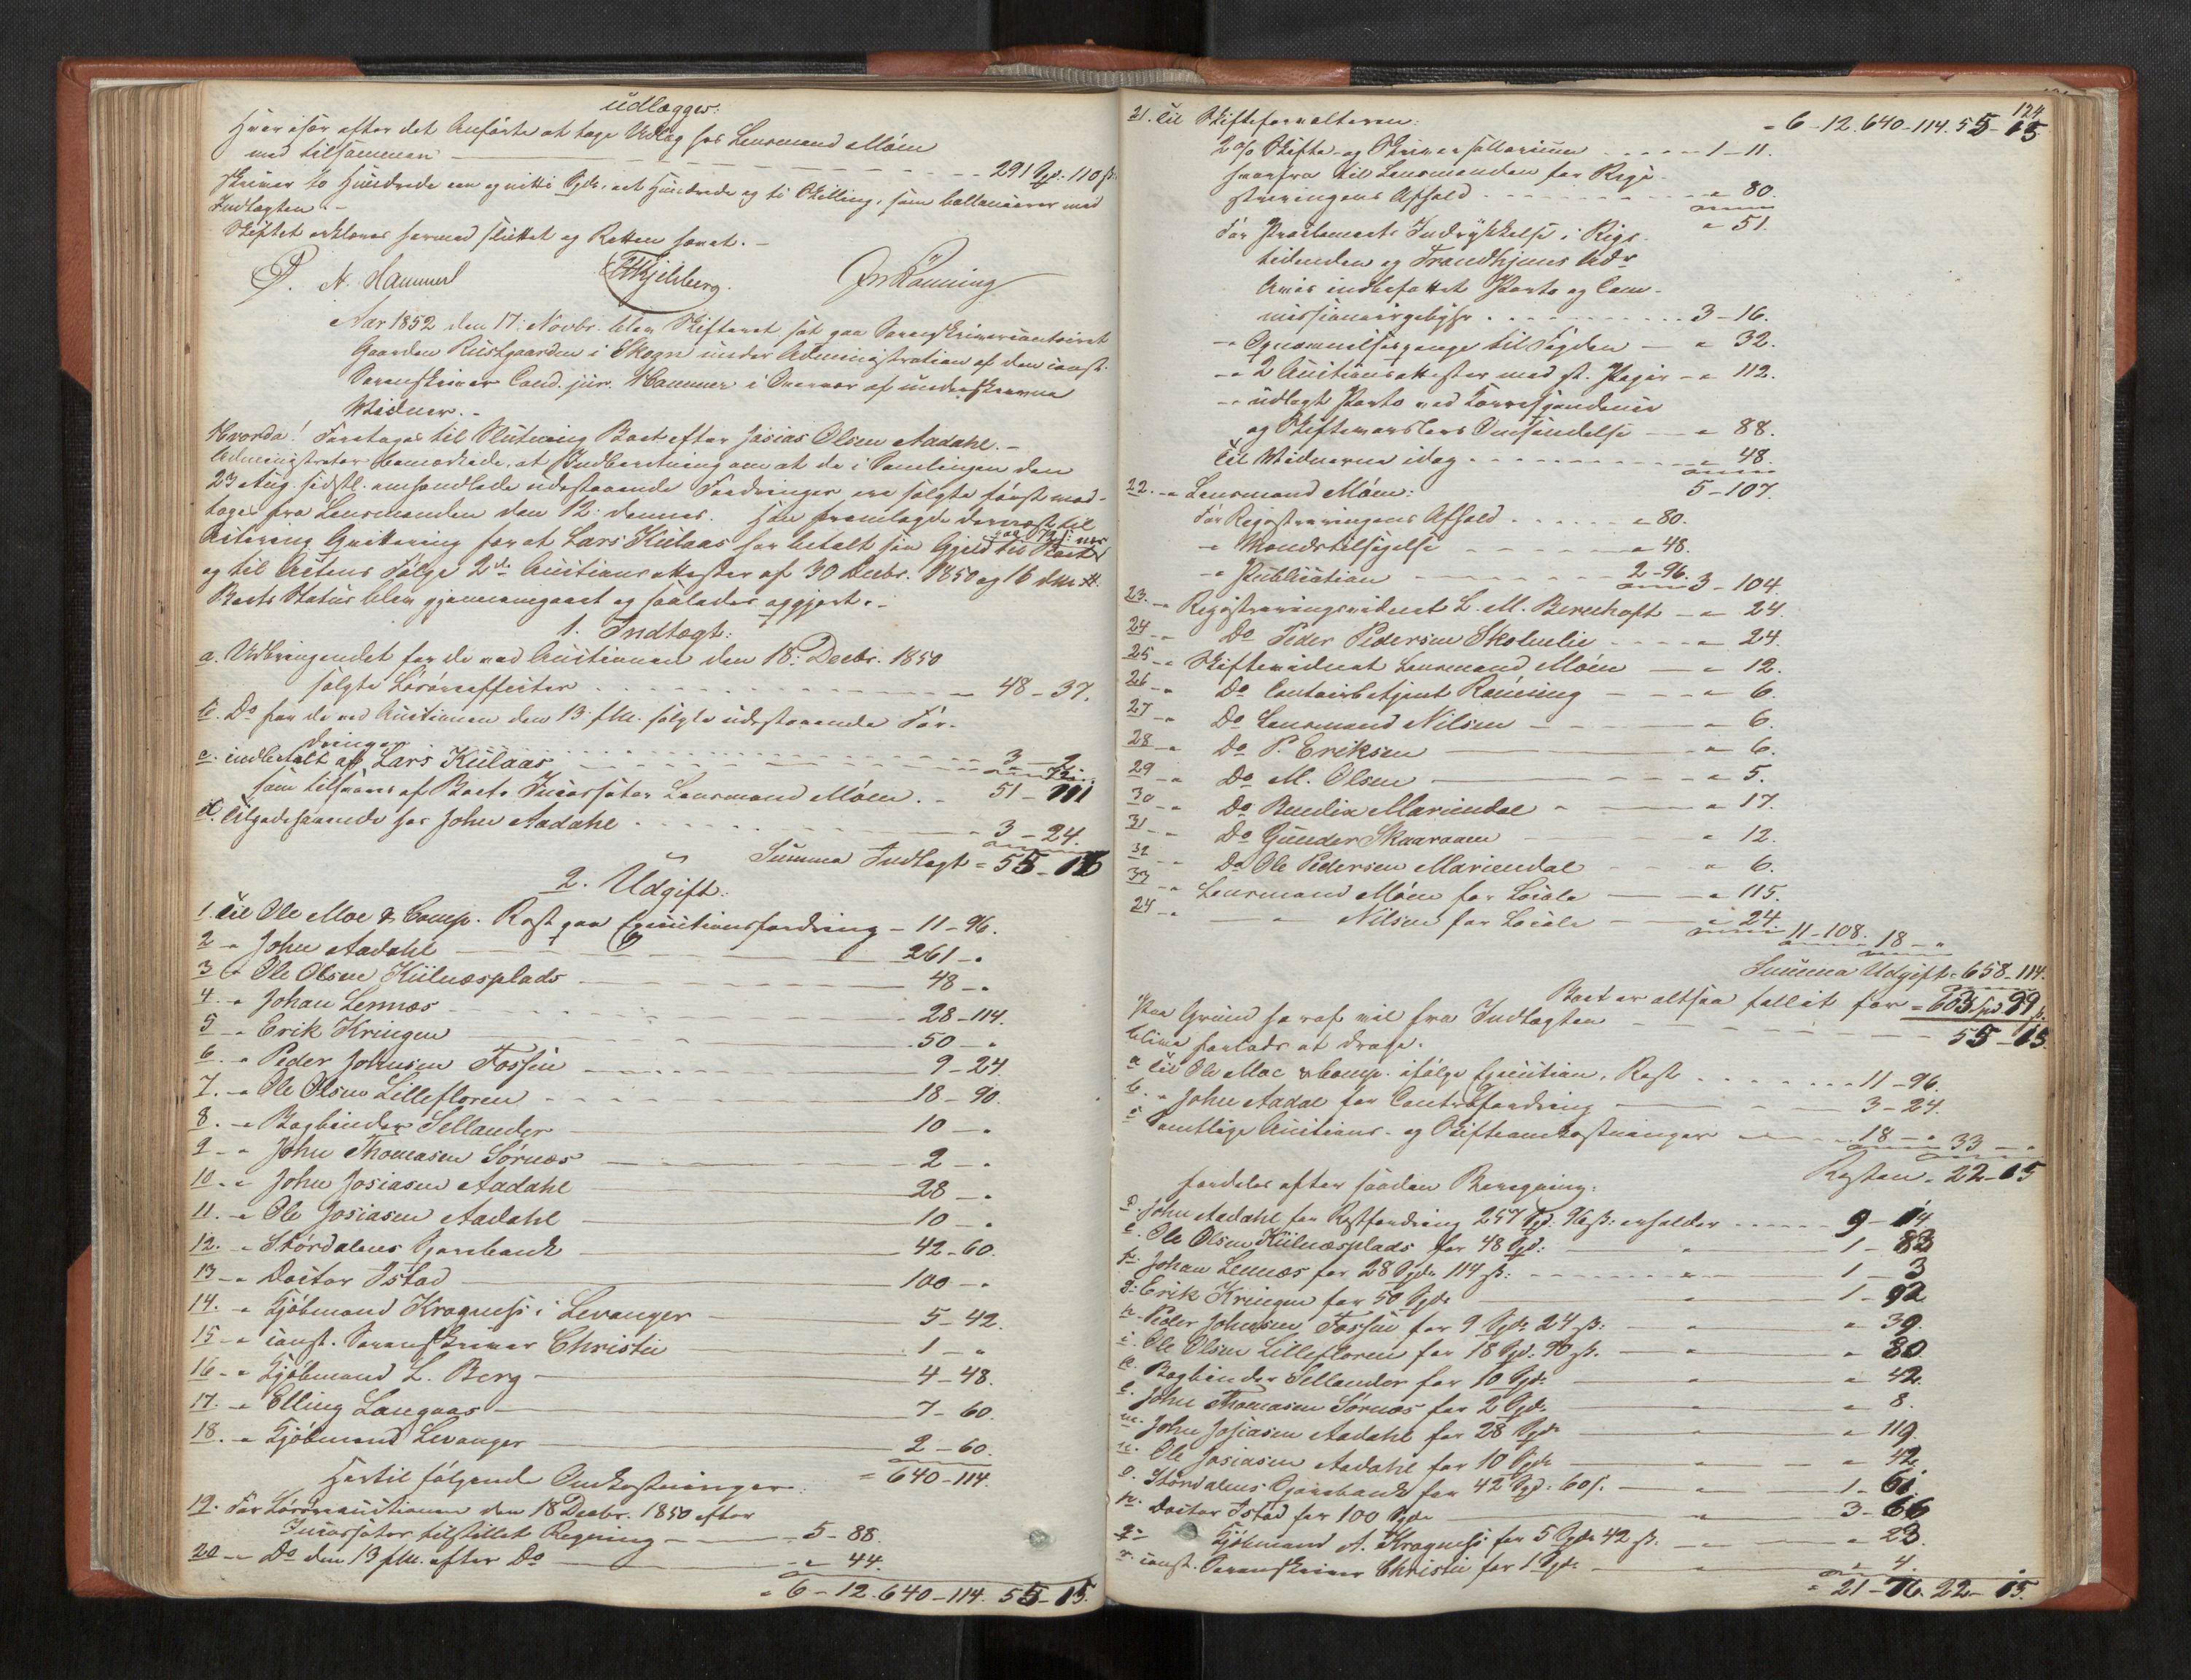 udlægges:
Hver især efter det Anførte at tage Udlæg hos Lensmand Móen
med tilsammen 291 Spd: 110 ß:
skriver to Hundrede een og nitti Spd, eet Hundrede og ti Skilling, som ballancerer med
Indtægten.-
Skiftet erklæres hermed sluttet og Retten hævet.-
P. N. Hammer Kjelsberg. Rönning
Aar 1852 den 17: Novbr: blev Skifteret sat paa Sorenskrivercontoiret
Gaarden Rustgaarden i Skogn under Administration af den const.
Sorenskriver Cand. jur. Hammer i Overvær af underskrevne
Vidner.-
Hvorda! Foretages til Slutning Boet efter Josias Olsen Aadahl.-
Administrator bemærkede, at Indberetning om at de i Samlingen den
23 Aug. sidstl. omhandlede udestaaende Fordringer ere solgte først mod-
toges fra Lensmanden den 12: dennes. Han fremlagde dernæst til
Qvitering for at Lars Kulaas har betalt sin Gjeld til Boet
og til Actens Følge 2de Auctionsattester af 30 Decbr. 1850 og 16 dms.
Boets Status blev gjennemgaaet og saaledes opgjort.-
1. Indtægt:
a. Udbringendet for de ved Auctionen den 18: Decbr. 1850
solgte Løsøreeffecter 48 - 37.
b. Do for de ved Auctionen den 13 f.M. solgte udestaaende For-
dringer 3 - 2
c. indbetalt af Lars Kulaas 72.
som tilsvares af Boets Incassator Lensmand Móen. - 51 - 111
d. Tilgodehavende hos John Aadahl 3 - 24.
Summa Indtægt = 55 - 15
2. Udgift:
1. Til Ole Moe & Comp. Rest paa Executionsfordring - 11 - 96.
2 - " John Aadahl 261 - "
3 " Ole Olsen Kulnæsplads 48 - "
4. - " Johan Lennæs 28 - 114.
5 - " Erik Kringen 50 - "
6. - " Peder Johnsen Fossen 9 - 24.
7. - " Ole Olsen Lillefloren 18 - 90.
8. - " Bogbinder Sellander 10 - "
9 - " John Thomasen Sørnæs 2 - "
10. - " John Josiasen Aadahl 28 - "
11. - " Ole Josiasen Aadahl 10 - "
12. - " Størdalens Sparebank 42 - 60.
13 - " Doctor Istad 100 - "
14. - " Kjøbmand Kragness i Levanger 5 - 42.
15 - " const. Sorenskriver Christie 1 - "
16 - " Kjøbmand L. Berg 4 - 48.
17. - " Elling Langaas 7 - 60.
18. - " Kjøbmand Levanger 2 - 60.
Hertil følgende Omkostninger: = 640 - 114.
19. For Løsøreauctionen den 18 Decbr. 1850 efter
Incassator tilstillet Regning 5 - 88.
20 - " Do den 13 f.M. efter Do " 44.
= 6 - 12. 640 - 114. 55 - 15.
124
21. Til Skifteforvalteren: = 6 - 12. 640 - 114. 55 - 15
2 o/o Skifte- og Skriversallarium 1 - 11.
herfra til Lensmanden for Regi-
streringens Afhold " 80.
" 51.
For Proclamets Indrykkelse i Rigs-
tidenden og Trondhjems Adr.
Avis indbefattet Porto og Com-
missionairgebyhr 3 - 16.
- Opnævnelsespenge til Fogden " 32.
- 2 Auctionsattester med st. Papir " 112.
- udlagt Porto ved Correspondence
og Skifteværslens Omsendelse " 88.
Til Vidnerne idag " 48.
5 - 107.
22. - " Lensmand Móen:
For Registreringens Afhold " 80.
- " Mændstilsigelse " 48.
- " Publication 2 - 96. 3 - 104.
23. - " Registreringsvidnet L. M. Bernhoft " 24.
24 - " Do Peder Pedersen Skolulie " 24.
25 - " Skiftevidnet Lensmand Móen " 12.
26 - " Do Contoirbetjent Rönning " 6.
27 - " Do Lensmand Nilsen " 6.
28 - " Do P. Eriksen " 6.
29 - " Do M. Olsen " 5.
30 - " Do Bendix Mariendal " 17.
31 - " Do Gunder Skaaraaen " 12.
32 - " Do Ole Pedersen Mariendal " 6.
33 - " Lensmand Móen for Locale " 115.
24 - " " Nilsen for Locale " 24. 11 - 108. 18 - "
Summa Udgift = 658 - 114.
Boet er altsaa fallit for = 603 Spd 99 ß.
Paa Grund heraf vil fra Indtægten 55 - 15.
blive forlods at drage:
a Til Ole Moe & Comp. ifølge Execution, Rest 11 - 96.
b. " John Aadal for Contrafordring 3 - 24.
c Samtlige Auctions- og Skifteomkostninger 18 - " 33 - "
Resten = 22 - 15
fordeles efter saadan Beregning:
d. John Aadahl for Restfordring 257 Spd. 96 ß: erholder 9 - 14
e. Ole Olsen Kulnæsplads for 48 Spd: 1 - 83
f. Johan Lennæs for 28 Spd 114 ß: 1 - 3
g. Erik Kringen for 50 Spd 1 - 92
h. Peder Johnsen Fossen for 9 Spd 24 ß: " 39.
i. Ole Olsen Lillefloren for 18 Spd. 90 ß. " 80
k. Bogbinder Sellander for 10 Spd: " 42.
l. John Thomasen Sørnæs for 2 Spd. " 8.
m. John Josiasen Aadahl for 28 Spd " 119.
n. Ole Josiasen Aadahl for 10 Spd " 42.
o. Størdalens Sparebank for 42 Spd. 60 ß. 1 - 61.
p. Doctor Istad for 100 Spd 3 - 66
q. Kjøbmand A. Kragness for 5 Spd 42 ß. " 23.
r. const. Sorenskriver Christie for 1 Spd. " 4.
= 21 - 76. 22 - 15.